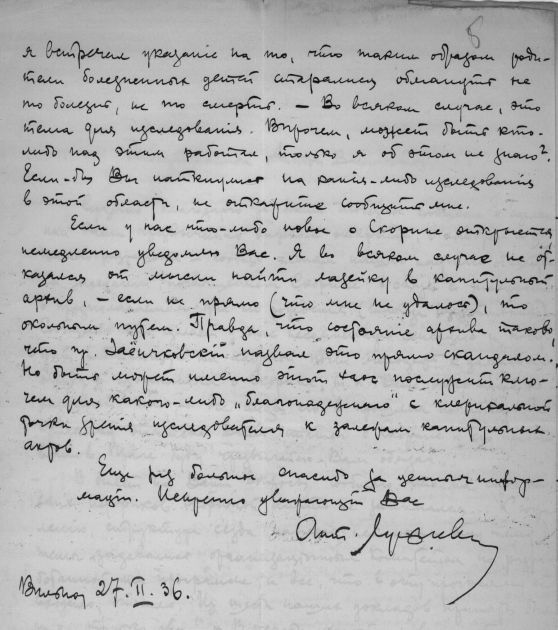 8
я встречал указанiе на то, что таким образом роди-
тели болезненных детей старались обмануть не
то болезнь, не то смерть. – Во всяком случае, это
тема для изследованiя. Впрочем, может быть кто-
либо над этим работал, только я об этом не знаю?
Если-бы Вы наткнулись на какiя-либо изследованiя
в этой области, не откажите сообщить мне.
Если у нас что-либо новое о Скорине откроется
немедленно уведомлю Вас. Я во всяком случае не от-
казался от мысли найти лазейку в капитульный
архив, – если не прямо (что мне не удалось), то
окольным путем. Правда, что состоянiе архива таково,
что пр. назвал это прямо скандалом.
Но быть может именно этот хаос послужит клю-
чем для какого-либо „благонадежнаго" с клерикальной
точки зрения изследователя к залежам капитульных
актов.
Еще раз большое спасибо за ценныя инфор-
мацiи. Искренно уважающiй Вас
Ант.
Вильна, 27.II.36.